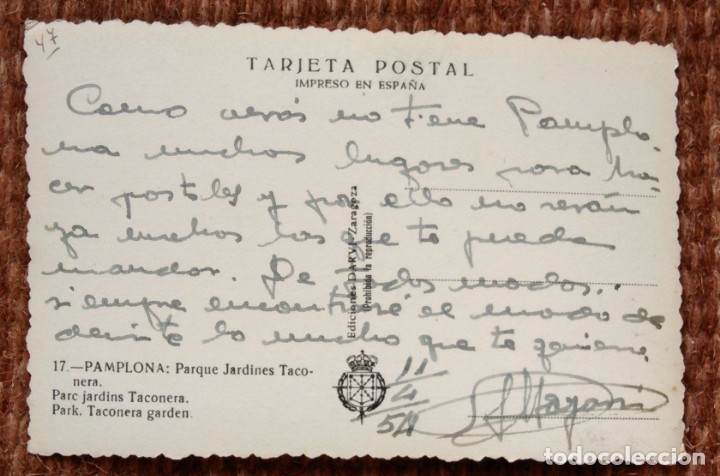 47
TARJETA POSTAL
IMPRESO EN ESPAÑA
Como verás no tiene Pamplo-
na muchos lugares para ha-
cer postales y por ello no serán
ya muchas las que te pueda
mandar. De todos modos..
siempre encontraré el modo de
decirte lo mucho que te quiero.
Ediciones DARVI-Zaragoza
(Prohibida la reproducción)
17.—PAMPLONA: Parque Jardines Taco-
nera.
Parc jardins Taconera.
Park. Taconera garden.
11
4
54
todocoleccion